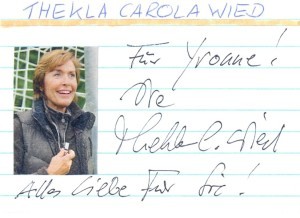 THEKLA CAROLA WIED
Für Yvonne!
Ihre
Thekla C. Wied
Alles Liebe für Sie!